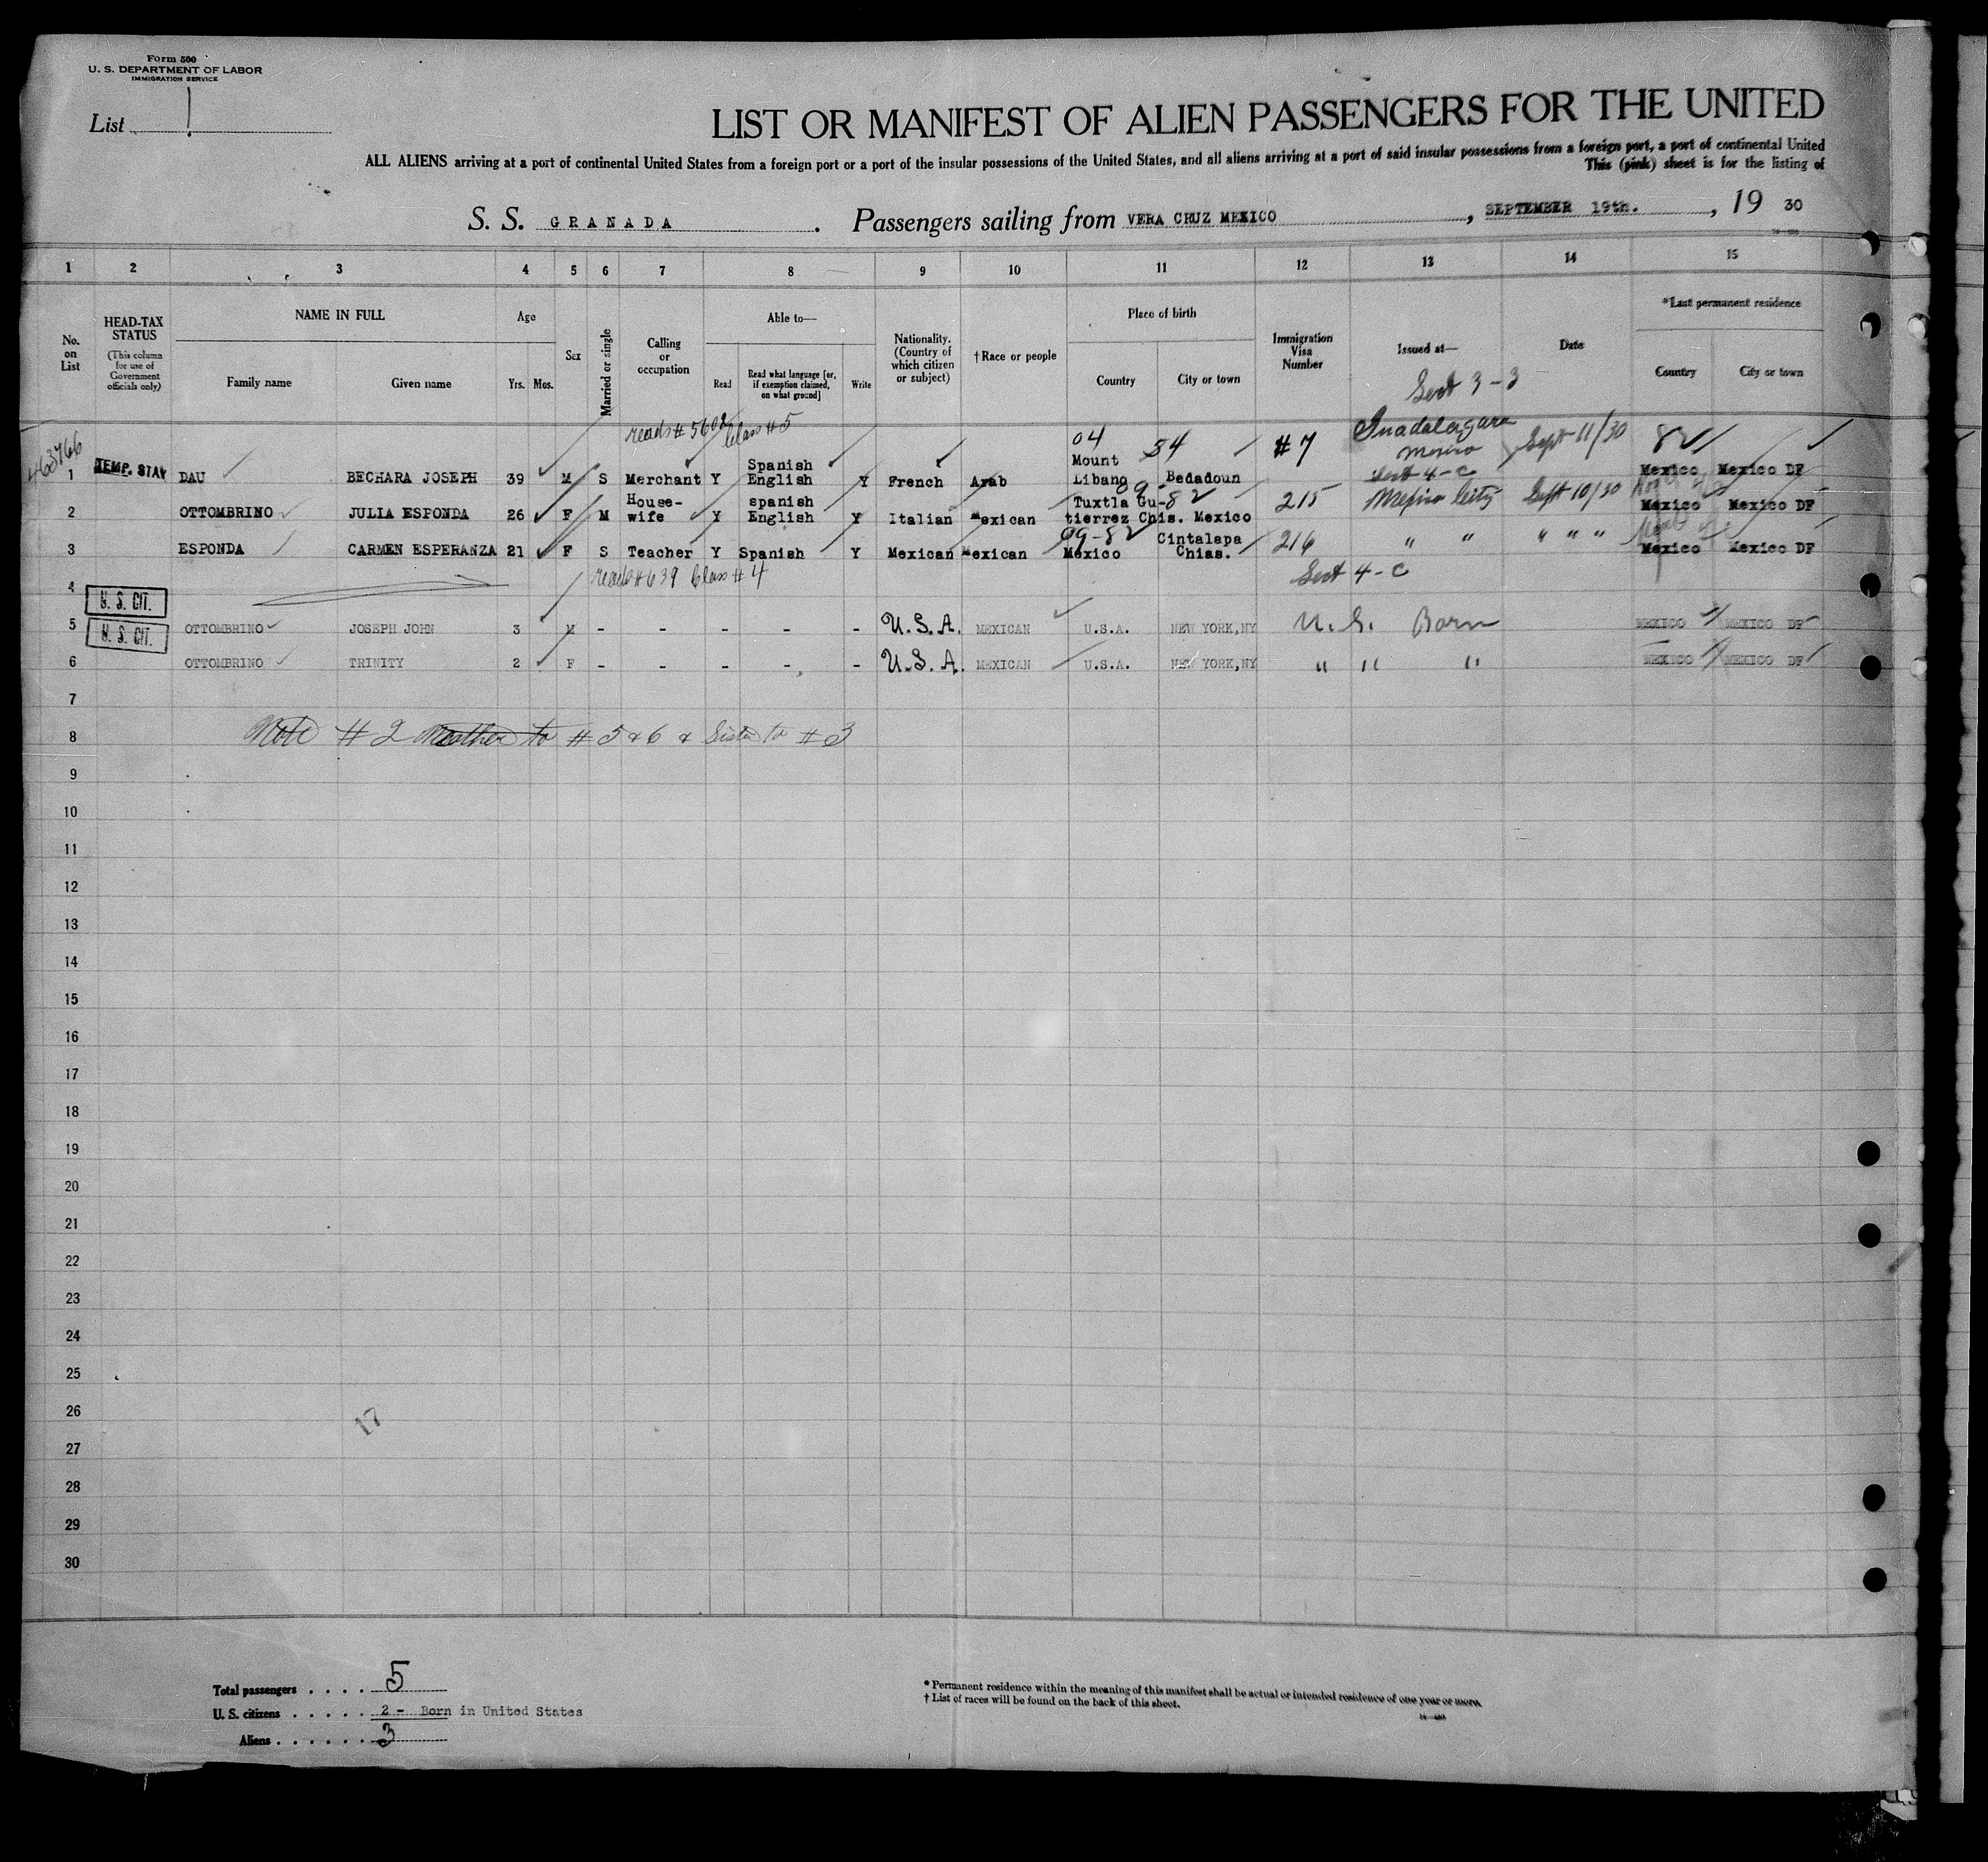 Form 500
U. S. DEPARTMENT OF LABOR
IMMIGRATION SERVICE
List 1
LIST OR MANIFEST OF ALIEN PASSENGERS FOR THE UNITED
ALL ALIENS arriving at a port of continental United States from a foreign port or a port of the insular possessions of the United States, and all aliens arriving at a port of said insular possessions from a foreign port, a port of continental United
This (pink) sheet is for the listing of
S. S. GRANADA. Passengers sailing from VERA CRUZ MEXICO, SEPTEMBER 19th., 19 30
1 2 3 4 5 6 7 8 9 10 11 12 13 14 15
No. on List
HEAD-TAX STATUS (This column for use of Government officials only)
NAME IN FULL
Family name Given name
Age
Yrs. Mos.
Sex
Married or single
Calling or occupation
Able to—
Read Read what language [or, if exemption claimed, on what ground] Write
Nationality. (Country of which citizen or subject)
†Race or people
Place of birth
Country City or town
Immigration Visa Number
Issued at—
Sect 3-3
Date
*Last permanent residence
Country City or town
reads # 5602 Class #5
04 54
463766
1 TEMP. STAY DAU BECHARA JOSEPH 39 M S Merchant Y Spanish English Y French Arab Mount Libano Bedadoun #7 Guadalajara Mexico Sept 11/30 82 Mexico Mexico DF
Sect 4-C
09-82
2 OTTOMBRINO JULIA ESPONDA 26 F M House-wife Y spanish English Y Italian Mexican Tuxtla Gutierrez Chis. Mexico 215 Mexico City Sept 10/30 Mexico Mexico DF
09-82
3 ESPONDA CARMEN ESPERANZA 21 F S Teacher Y Spanish Y Mexican Mexican Mexico Cintalapa Chias. 216 " " " " " Mexico Mexico DF
4 reads #639 Class #4 Sect 4-C
U. S. CIT.
5 OTTOMBRINO JOSEPH JOHN 3 M - - - - - U.S.A. MEXICAN U.S.A. NEW YORK,NY U.S. Born MEXICO MEXICO DF
U. S. CIT.
6 OTTOMBRINO TRINITY 2 F - - - - - U.S.A. MEXICAN U.S.A. NEW YORK,NY " " " MEXICO MEXICO DF
7
8 Note #2 Mother to #5 & 6 & Sister to #3
9
10
11
12
13
14
15
16
17
18
19
20
21
22
23
24
25
26
17
27
28
29
30
Total passengers . . . . 5
U. S. citizens . . . . . 2 - Born in United States
Aliens . . . . . . . 3
* Permanent residence within the meaning of this manifest shall be actual or intended residence of one year or more.
† List of races will be found on the back of this sheet.